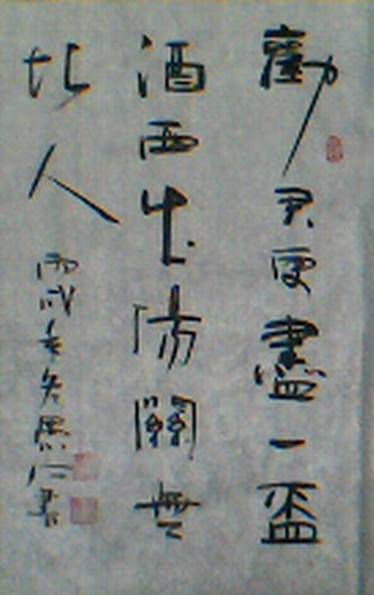 勸君更盡一盃
酒西出陽關無
故人
丙戌 書